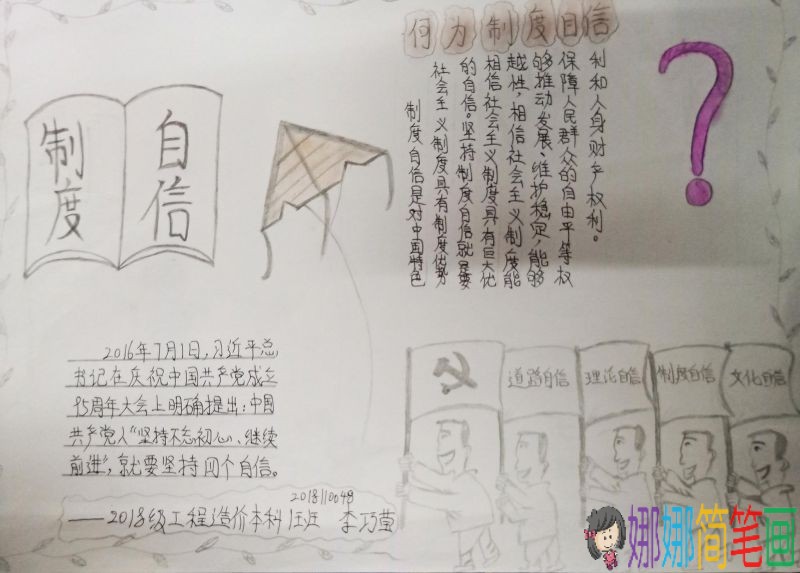 何为制度自信
？
制度自信是对中国特色
社会主义制度具有制度优势
的自信。坚持制度自信就是要
相信社会主义制度具有巨大优
越性，相信社会主义制度能
够推动发展、维护稳定，能够
保障人民群众的自由平等权
利和人身财产权利。
制度
自信
2016年7月1日，习近平总
书记在庆祝中国共产党成立
95周年大会上明确提出：中国
共产党人“坚持不忘初心、继续
前进”，就要坚持四个自信。
2018110048
——2018级工程造价本科 李巧萤
道路自信
理论自信
制度自信
文化自信
娜娜简笔画